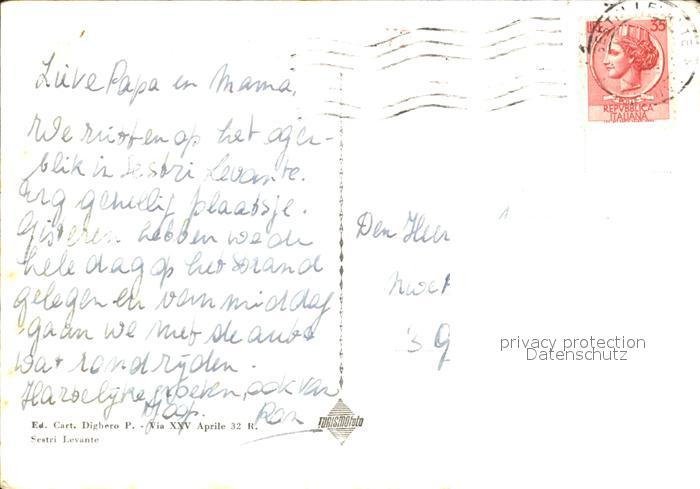 Lieve Papa en Mama,
We zitten op het ogen-
blik in Sestri Levante.
Erg gezellig plaatsje.
Gisteren hebben we de
hele dag op het strand
gelegen en vanmiddag
gaan we met de auto
wat rondrijden.
Hartelijke groeten, ook van
Jaap. Ran
Ed. Cart. Dighero P. - Via XXV Aprile 32 R.
Sestri Levante
TURISMOfoto
LIRE 35
REPVBBLICA
ITALIANA
Den Heer
's G
privacy protection
Datenschutz